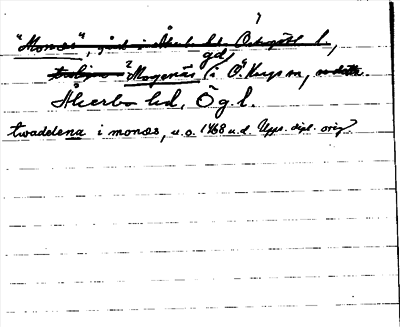 "Monæs", gård i Åkerbo hd Östergötl. l.,
troligen ? Mogenäs gd i Ö. Husby sn,
Åkerbo hd, Ög. l.
twadelena i monæs, u.o. 1468 u.d. Upps. dipl. orig.